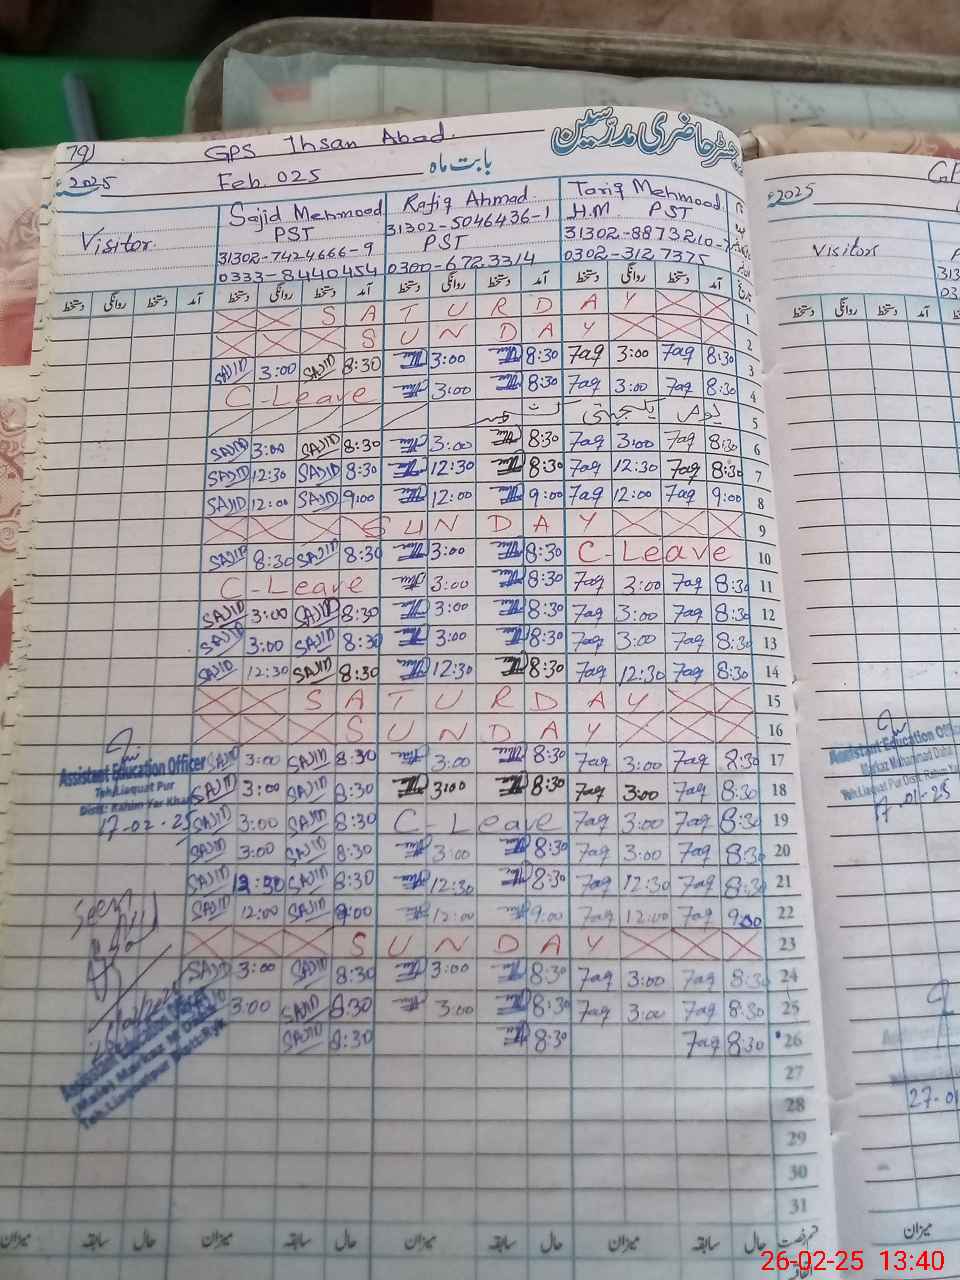 79)
GPS Ihsan Abad.
رجسٹر حاضری مدرسین
2025ء
Feb. 025
بابت ماہ
Visitor.
Sajid Mehmood
PST
31302-7424666-9
0333-8440454
Rafiq Ahmad.
31302-5046436-1
PST
0300-6723314
Tariq Mehmood
H.M. PST
31302-8873210-7
0302-3127375
دستخط روانگی دستخط آمد دستخط روانگی دستخط آمد دستخط روانگی دستخط آمد دستخط روانگی دستخط آمد تاریخ
S A T U R D A Y 1
S U N D A Y 2
SAJID 3:00 SAJID 8:30 3:00 8:30 Taq 3:00 Taq 8:30 3
C-Leave 3:00 8:30 Taq 3:00 Taq 8:30 4
یوم یکجہتی 5
SAJID 3:00 SAJID 8:30 3:00 8:30 Taq 3:00 Taq 8:30 6
SAJID 12:30 SAJID 8:30 12:30 8:30 Taq 12:30 Taq 8:30 7
SAJID 12:00 SAJID 9:00 12:00 9:00 Taq 12:00 Taq 9:00 8
S U N D A Y 9
SAJID 8:30 SAJID 8:30 3:00 8:30 C-Leave 10
C-Leave 3:00 8:30 Taq 3:00 Taq 8:30 11
SAJID 3:00 SAJID 8:30 3:00 8:30 Taq 3:00 Taq 8:30 12
SAJID 3:00 SAJID 8:30 3:00 8:30 Taq 3:00 Taq 8:30 13
SAJID 12:30 SAJID 8:30 12:30 8:30 Taq 12:30 Taq 8:30 14
S A T U R D A Y 15
S U N D A Y 16
SAJID 3:00 SAJID 8:30 3:00 8:30 Taq 3:00 Taq 8:30 17
SAJID 3:00 SAJID 8:30 3:00 8:30 Taq 3:00 Taq 8:30 18
SAJID 3:00 SAJID 8:30 C-Leave Taq 3:00 Taq 8:30 19
SAJID 3:00 SAJID 8:30 3:00 8:30 Taq 3:00 Taq 8:30 20
SAJID 12:30 SAJID 8:30 12:30 8:30 Taq 12:30 Taq 8:30 21
SAJID 12:00 SAJID 9:00 12:00 9:00 Taq 12:00 Taq 9:00 22
S U N D A Y 23
SAJID 3:00 SAJID 8:30 3:00 8:30 Taq 3:00 Taq 8:30 24
3:00 SAJID 8:30 3:00 8:30 Taq 3:00 Taq 8:30 25
SAJID 8:30 8:30 Taq 8:30 26
27
28
29
30
31
میزان سابقہ حال میزان سابقہ حال میزان سابقہ حال میزان سابقہ حال
Assistant Education Officer
Teh. Liaquat Pur
Distt. Rahim Yar Khan
17-02-25
Seen
Assistant Education Officer
2025ء
Visitors
دستخط روانگی دستخط آمد
Assistant Education Officer
Teh. Liaquat Pur Distt. Rahim Yar
17-01-25
27-01
میزان
26-02-25 13:40